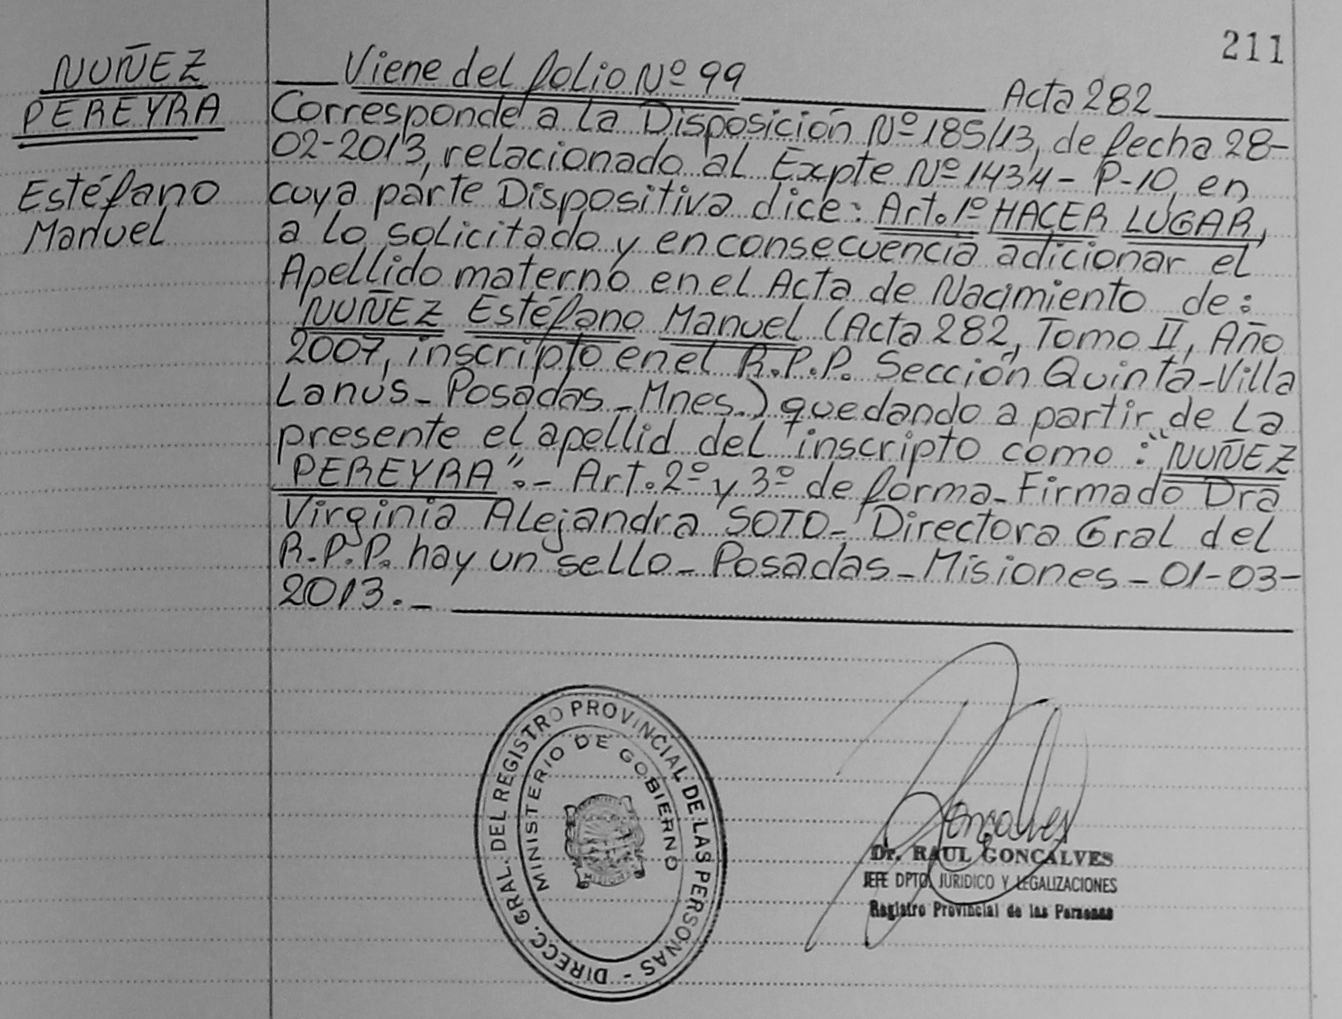 211
NUÑEZ
PEREYRA
Estéfano
Manuel
Viene del folio Nº 99
Acta 282
Corresponde a la Disposición Nº 185/13, de fecha 28-
02-2013, relacionado al Expte Nº 1434- P-10, en
cuya parte Dispositiva dice: Art. 1º HACER LUGAR,
a lo solicitado y en consecuencia adicionar el
Apellido materno en el Acta de Nacimiento de:
NUÑEZ Estéfano Manuel (Acta 282, Tomo II, Año
2007, inscripto en el R.P.P. Sección Quinta-Villa
Lanus- Posadas- Mnes.) quedando a partir de La
presente el apellid del inscripto como: "NUÑEZ
PEREYRA".- Art. 2º y 3º de forma- Firmado Dra
Virginia Alejandra SOTO- Directora Gral del
R.P.P. hay un sello- Posadas- Misiones- 01-03-
2013.-
DIRECC. GRAL. DEL REGISTRO PROVINCIAL DE LAS PERSONAS -
MINISTERIO DE GOBIERNO
Gonçalves
Dr. RAUL GONÇALVES
JEFE DPTO. JURIDICO Y LEGALIZACIONES
Registro Provincial de las Personas